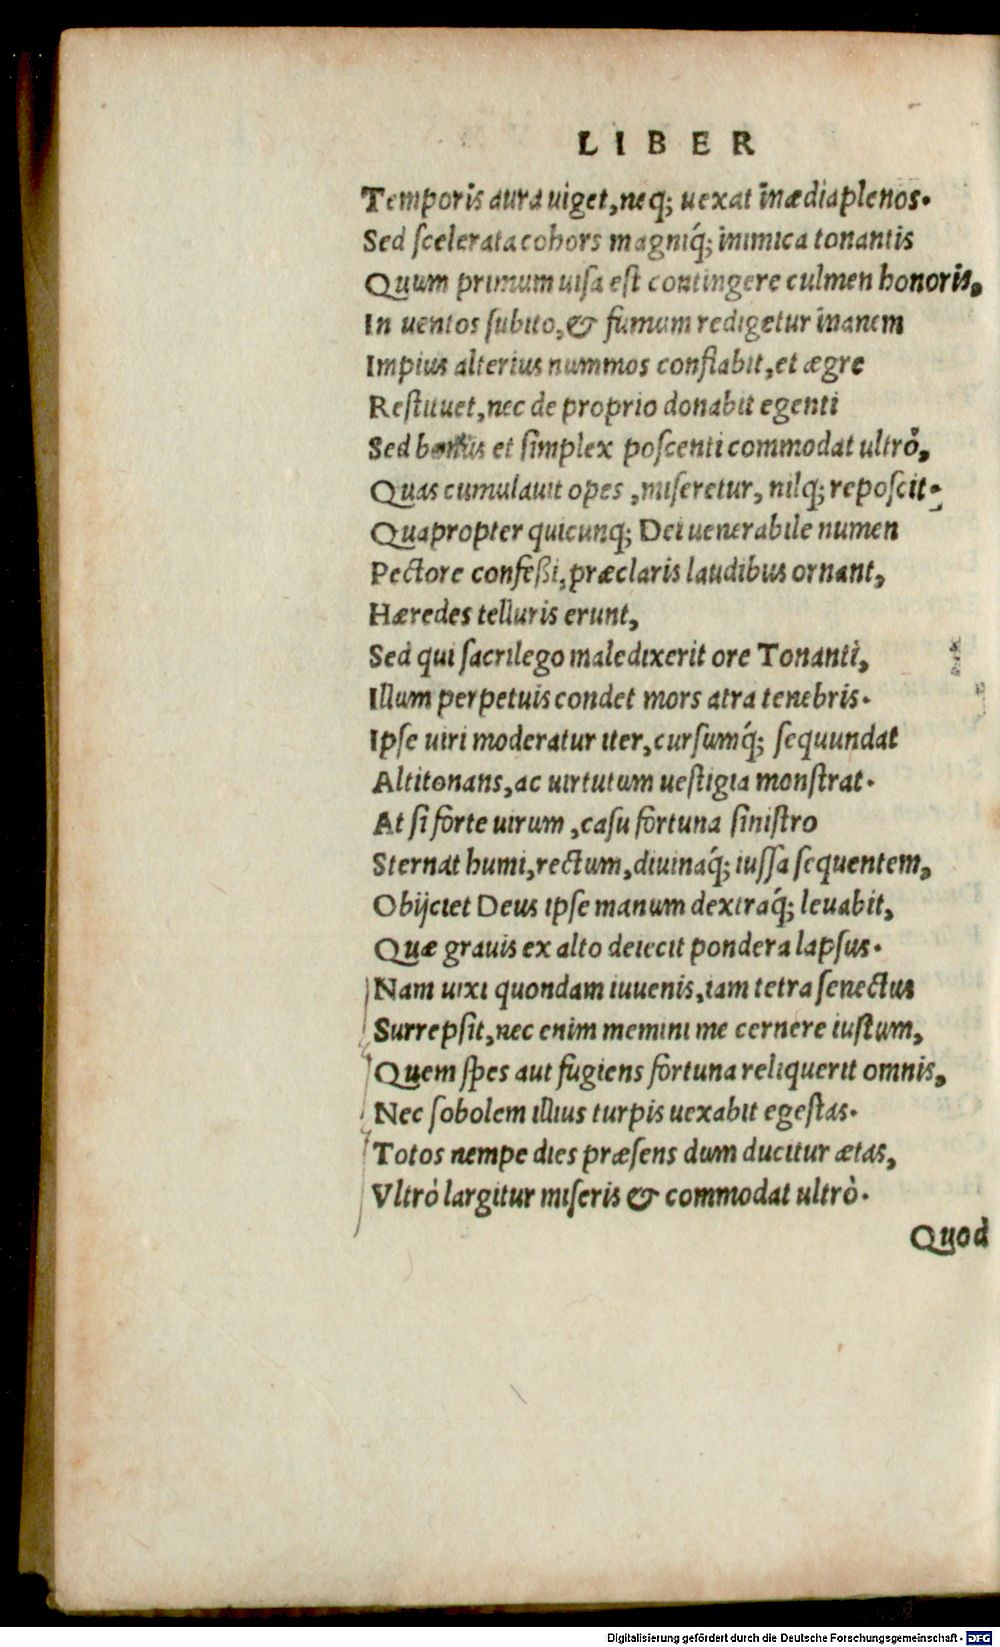 LIBER
Temporis aura uiget, neq; uexat inædia plenos.
Sed scelerata cohors magniq́; inimica tonantis
Quum primum uisa est contingere culmen honoris,
In uentos subito, & fumum redigetur inanem
Impius alterius nummos conflabit, et ægre
Restituet, nec de proprio donabit egenti
Sed bonus et simplex poscenti commodat ultrò,
Quas cumulauit opes, miseretur, nilq; reposcit.
Quapropter quicunq; Dei uenerabile numen
Pectore confeßi, præclaris laudibus ornant,
Hæredes telluris erunt,
Sed qui sacrilego maledixerit ore Tonanti,
Illum perpetuis condet mors atra tenebris.
Ipse uiri moderatur iter, cursumq́; sequundat
Altitonans, ac uirtutum uestigia monstrat.
At si forte uirum, casu fortuna sinistro
Sternat humi, rectum, diuinaq́; iussa sequentem,
Obijciet Deus ipse manum dextraq́; leuabit,
Quæ grauis ex alto deiecit pondera lapsus.
Nam uixi quondam iuuenis, iam tetra senectus
Surrepsit, nec enim memini me cernere iustum,
Quem spes aut fugiens fortuna reliquerit omnis,
Nec sobolem illius turpis uexabit egestas.
Totos nempe dies præsens dum ducitur ætas,
Vltrò largitur miseris & commodat ultrò.
Quod
Digitalisierung gefördert durch die Deutsche Forschungsgemeinschaft - DFG